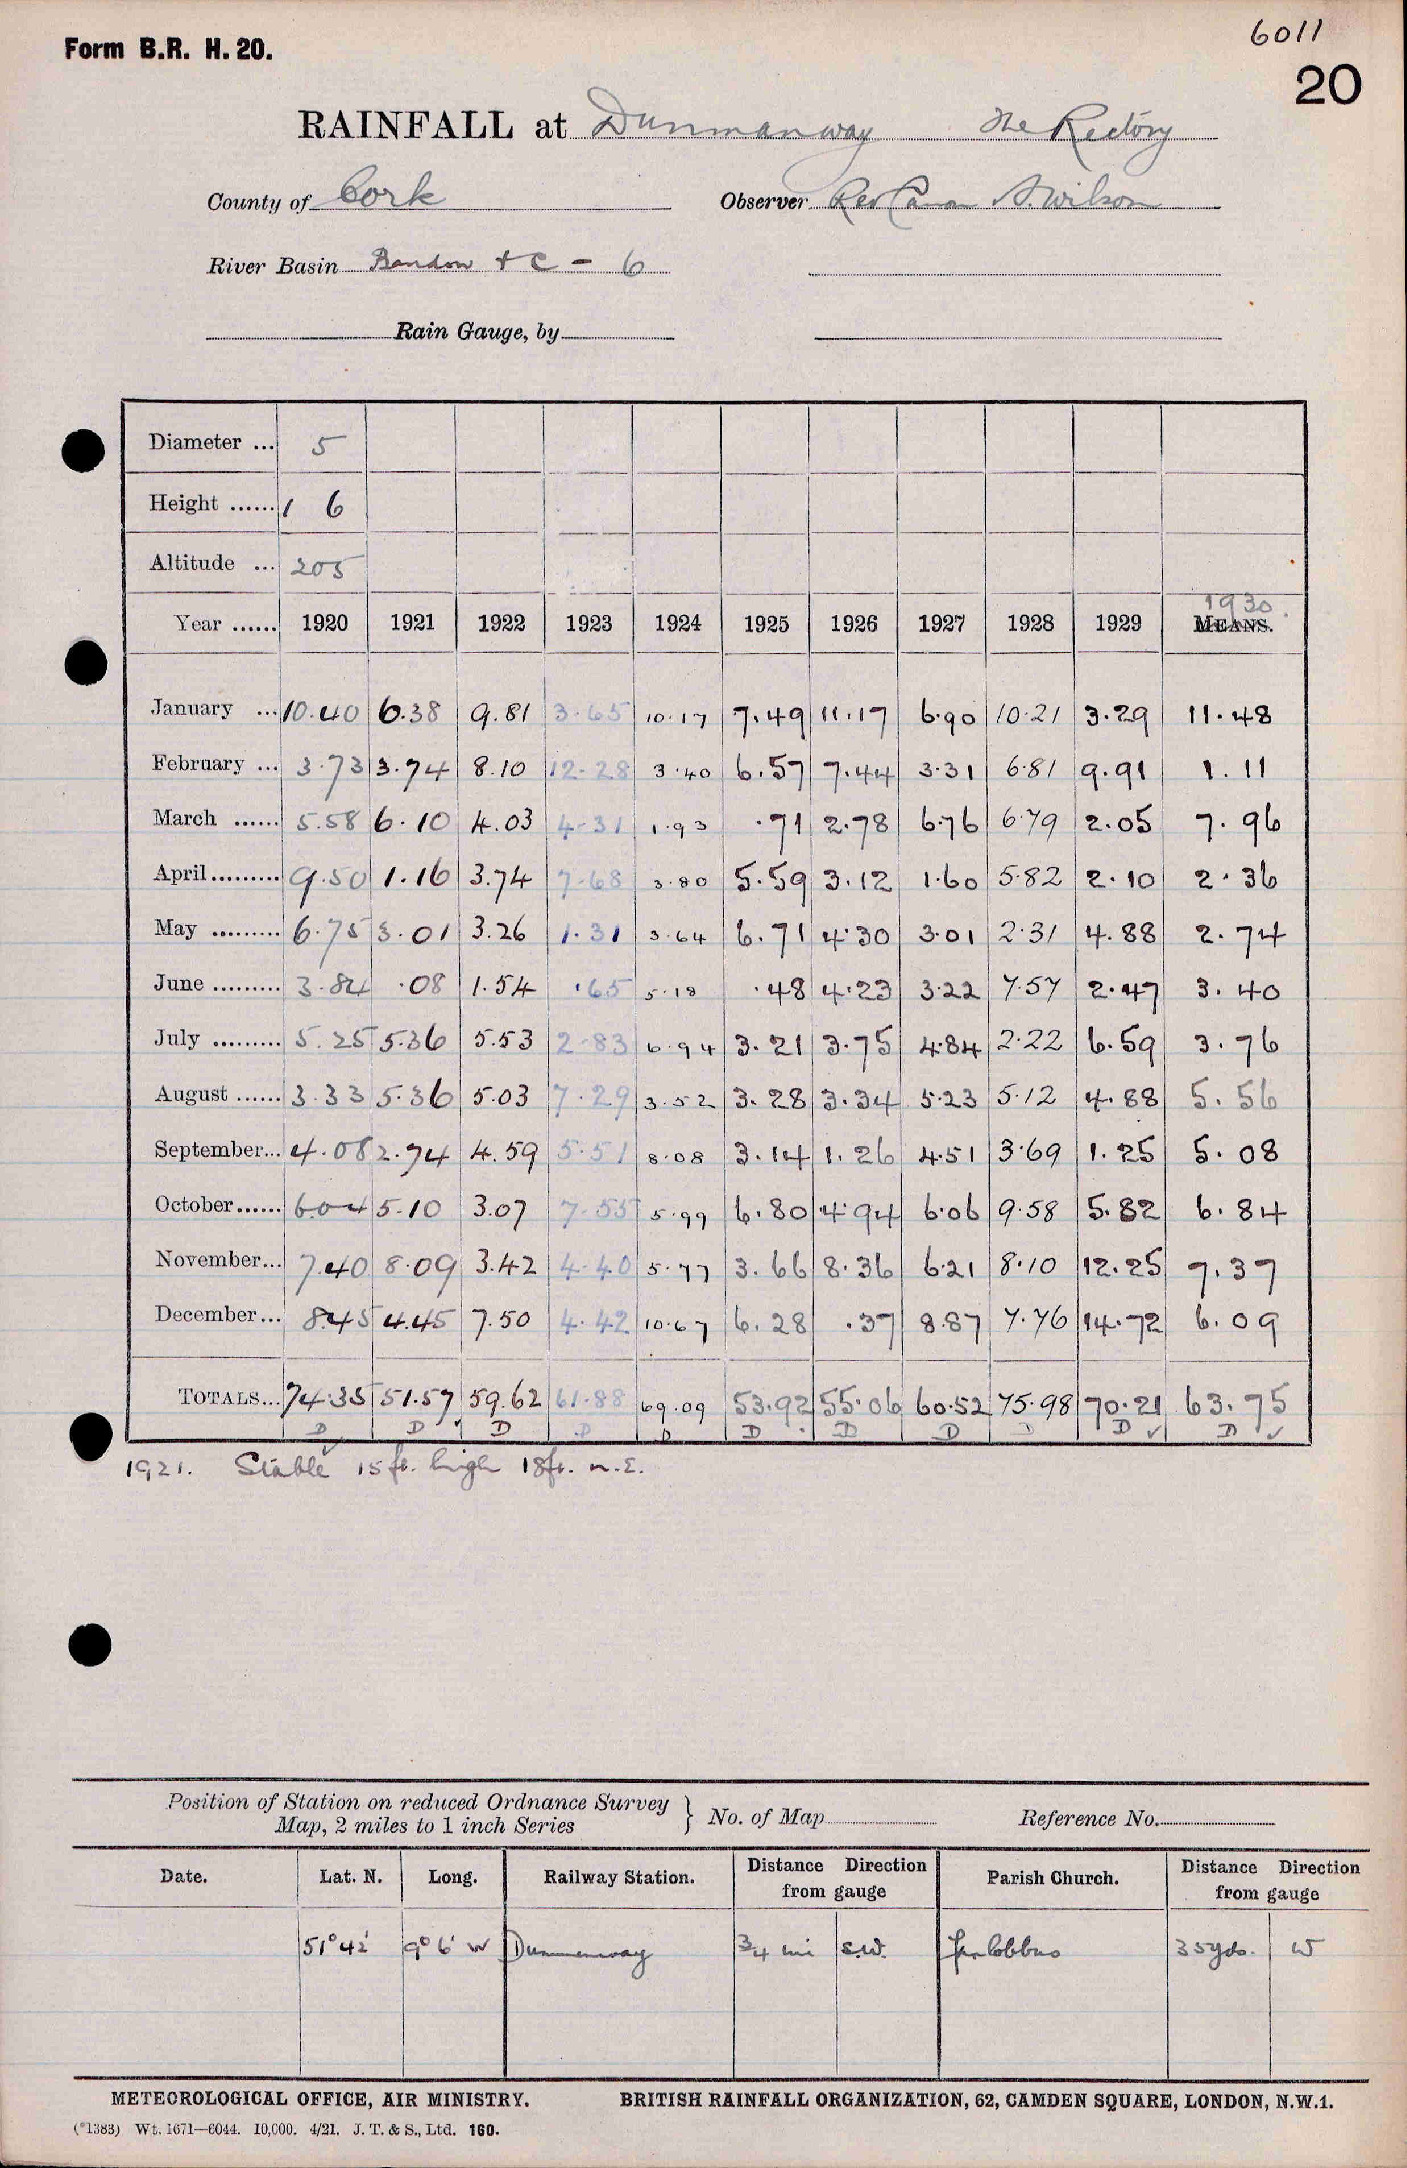 6011
Form B.R. H. 20.
20
RAINFALL at Dunmanway The Rectory
County of Cork Observer Rev Canon A. Wilson
River Basin Bandon + C - 6
Rain Gauge, by
Diameter ... 5
Height ...... 1 6
Altitude ... 205
Year ...... 1920 1921 1922 1923 1924 1925 1926 1927 1928 1929 1930. MEANS.
January ... 10.40 6.38 9.81 3.65 10.17 7.49 11.17 6.90 10.21 3.29 11.48
February ... 3.73 3.74 8.10 12.28 3.40 6.57 7.44 3.31 6.81 9.91 1.11
March ...... 5.58 6.10 4.03 4.31 1.93 .71 2.78 6.76 6.79 2.05 7.96
April ......... 9.50 1.16 3.74 7.68 3.80 5.59 3.12 1.60 5.82 2.10 2.36
May ......... 6.75 3.01 3.26 1.31 3.64 6.71 4.30 3.01 2.31 4.88 2.74
June ......... 3.84 .08 1.54 .65 5.18 .48 4.23 3.22 7.57 2.47 3.40
July ......... 5.25 5.36 5.53 2.83 6.94 3.21 3.75 4.84 2.22 6.59 3.76
August ...... 3.33 5.36 5.03 7.29 3.52 3.28 3.34 5.23 5.12 4.88 5.56
September... 4.08 2.74 4.59 5.51 8.08 3.14 1.26 4.51 3.69 1.25 5.08
October...... 6.04 5.10 3.07 7.55 5.99 6.80 4.94 6.06 9.58 5.82 6.84
November... 7.40 8.09 3.42 4.40 5.77 3.66 8.36 6.21 8.10 12.25 7.37
December... 8.45 4.45 7.50 4.42 10.67 6.28 .37 8.87 7.76 14.72 6.09
TOTALS... 74.35 51.57 59.62 61.88 69.09 53.92 55.06 60.52 75.98 70.21 63.75
D D ✓ D D D D D D D D ✓ D ✓
1921. Stable 15 ft. high 18 ft. N.E.
Position of Station on reduced Ordnance Survey
Map, 2 miles to 1 inch Series } No. of Map Reference No.
Date. Lat. N. Long. Railway Station. Distance Direction from gauge Parish Church. Distance Direction from gauge
51° 42' 9° 6' W Dunmanway 3/4 mi S.W. Fanlobbus 35 yds. W
METEOROLOGICAL OFFICE, AIR MINISTRY. BRITISH RAINFALL ORGANIZATION, 62, CAMDEN SQUARE, LONDON, N.W.1.
(*1383) Wt. 1671—6044. 10,000. 4/21. J. T. & S., Ltd. 160.